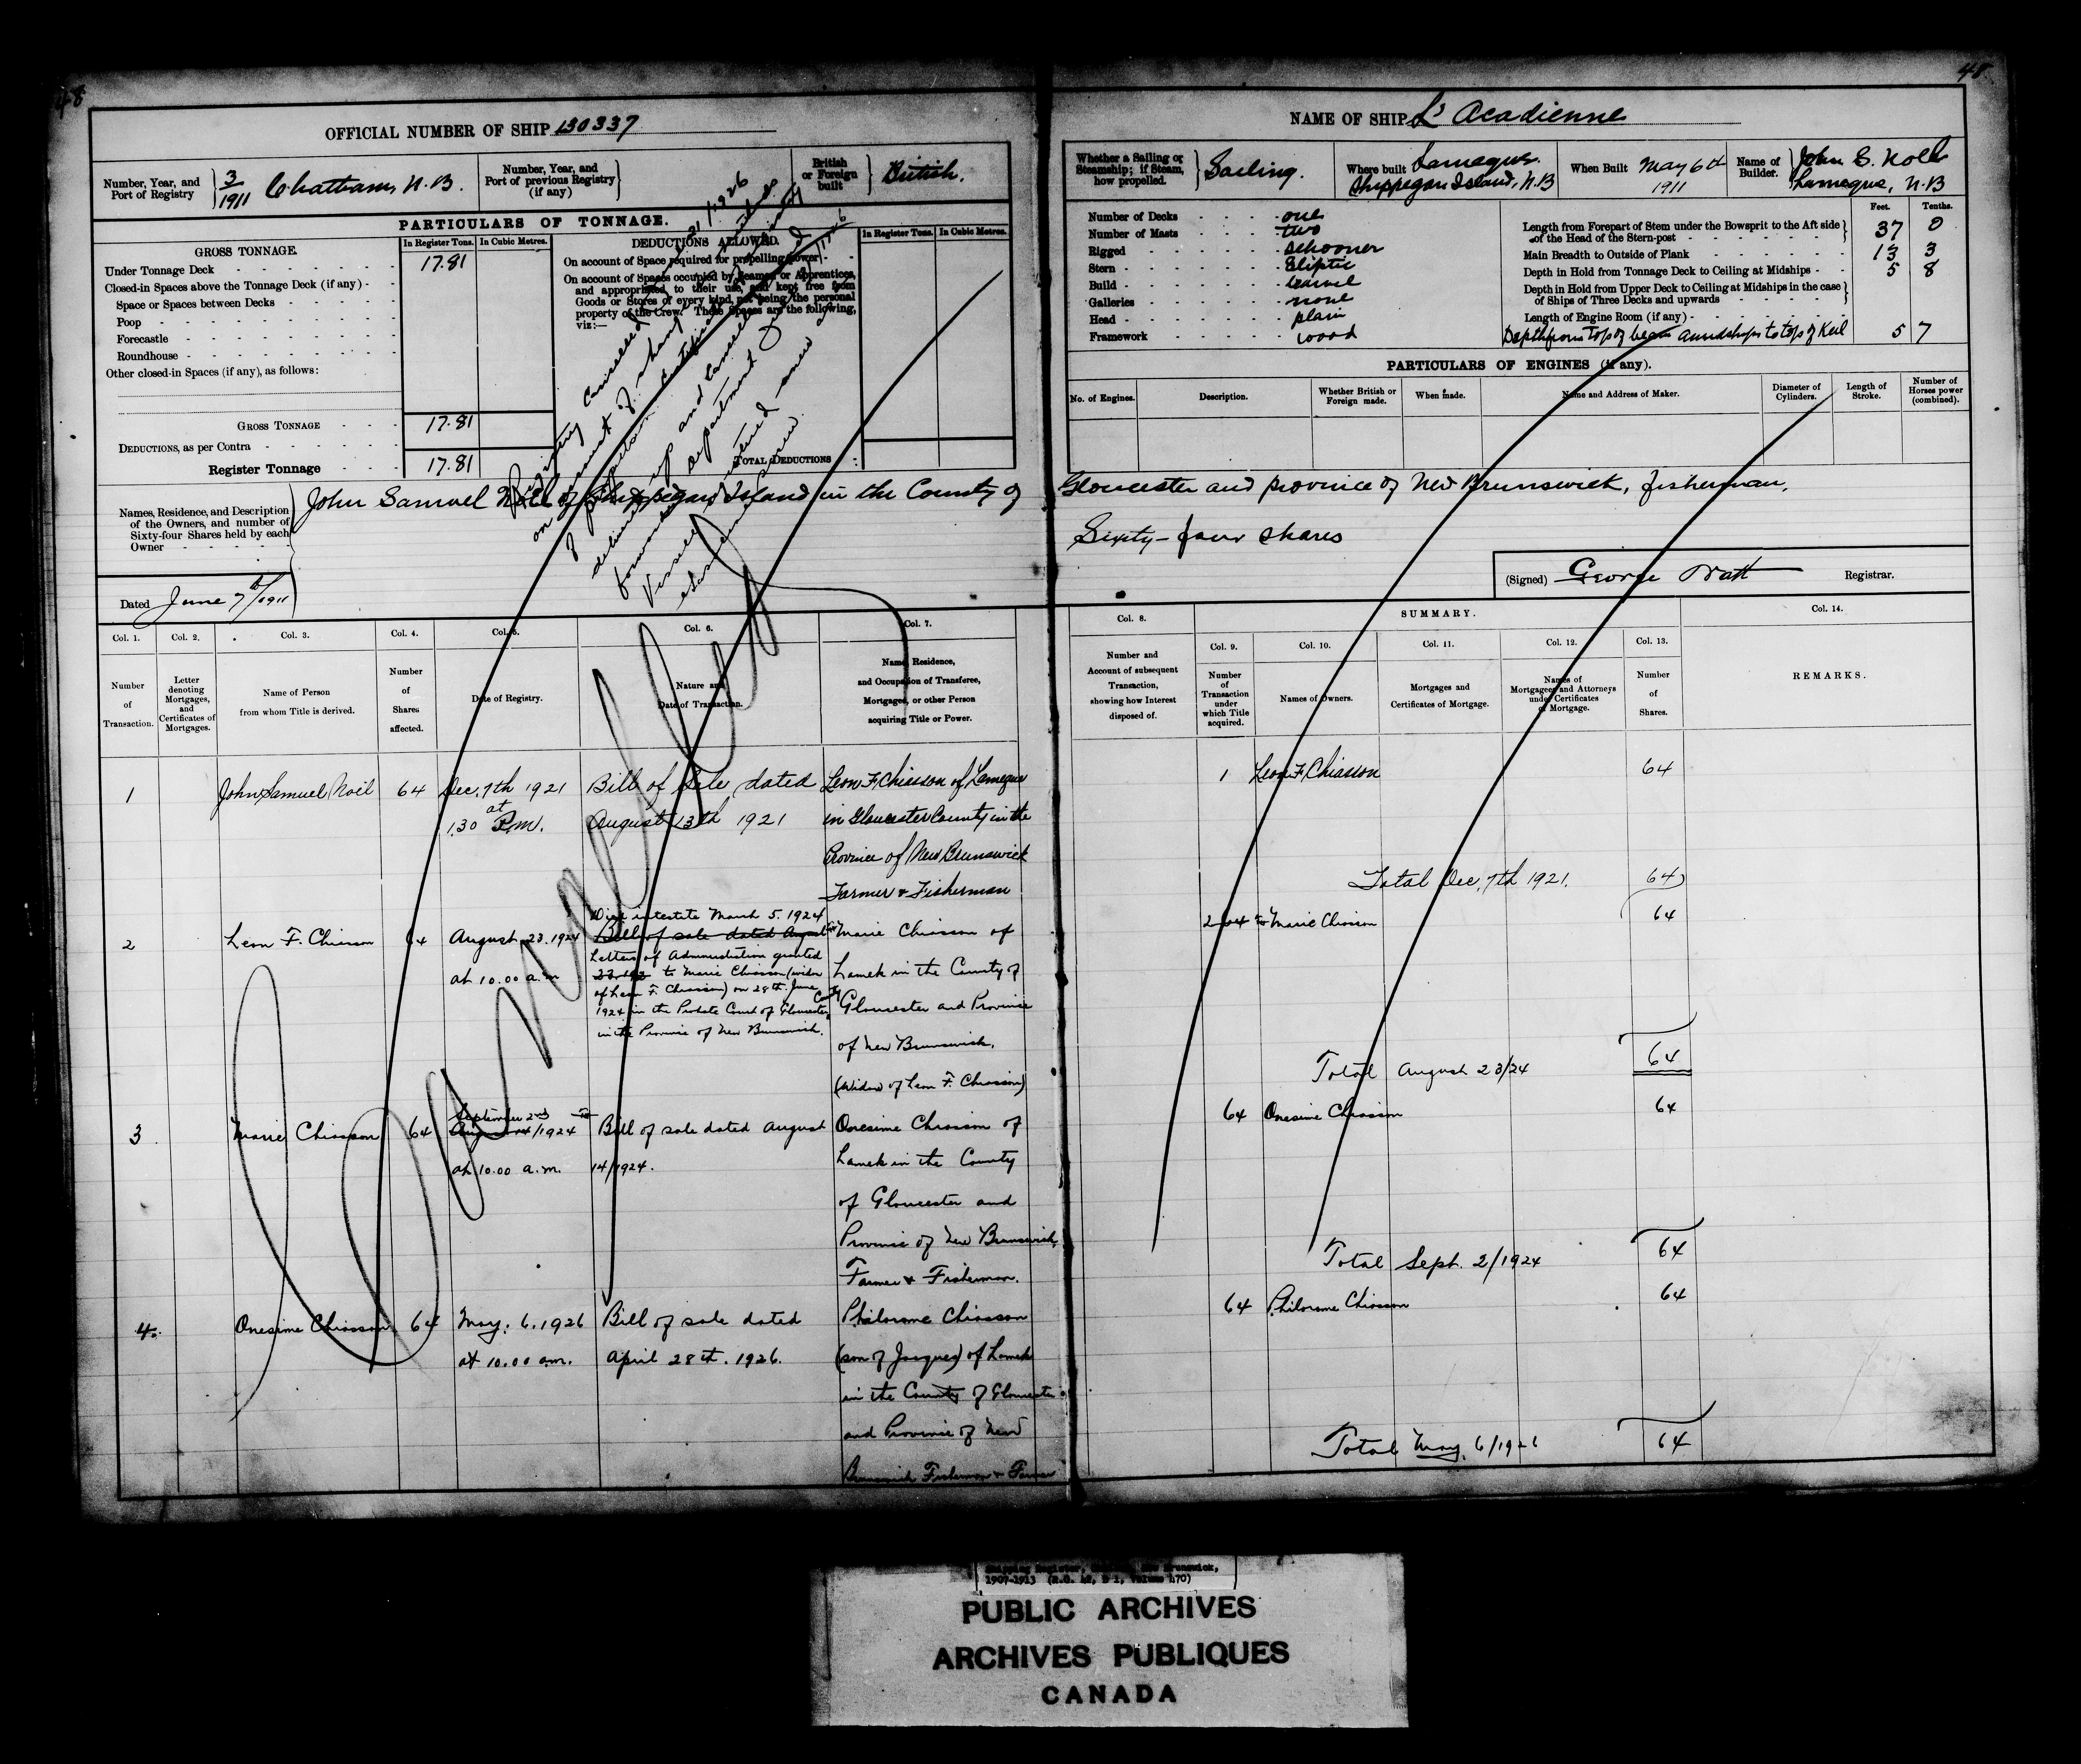 48
48
OFFICIAL NUMBER OF SHIP 130337
NAME OF SHIP L' Acadienne
Number, Year, and Port of Registry
3/1911 Chatham, N.B.
Number, Year, and Port of previous Registry (if any)
British or Foreign built
British.
Whether a Sailing or Steamship; if Steam, how propelled.
Sailing.
Where built Lameque Shippegan Island, N.B
When Built May 6th 1911
Name of Builder.
Lameque, N.B
PARTICULARS OF TONNAGE.
GROSS TONNAGE.
In Register Tons.
In Cubic Metres.
Under Tonnage Deck
17.81
Closed-in Spaces above the Tonnage Deck (if any)
Space or Spaces between Decks
Poop
Forecastle
Roundhouse
Other closed-in Spaces (if any), as follows:
GROSS TONNAGE
17.81
DEDUCTIONS, as per Contra
Register Tonnage
17.81
DEDUCTIONS ALLOWED.
In Register Tons.
In Cubic Metres.
On account of Space required for propelling power
On account of Spaces occupied by Seamen or Apprentices,
and appropriated to their use, and kept free from
Goods or Stores of every kind, not being the personal
property of the Crew. These Spaces are the following,
viz:—
TOTAL DEDUCTIONS
Number of Decks one
Number of Masts two
Rigged Schooner
Stern Eliptic
Build Carvel
Galleries none
Head plain
Framework wood
Feet. Tenths.
Length from Forepart of Stem under the Bowsprit to the Aft side
of the Head of the Stern-post 37 0
Main Breadth to Outside of Plank 13 3
Depth in Hold from Tonnage Deck to Ceiling at Midships 5 8
Depth in Hold from Upper Deck to Ceiling at Midships in the case
of Ships of Three Decks and upwards
Length of Engine Room (if any)
Depth from top of beam amidships to top of Keel 5 7
PARTICULARS OF ENGINES (if any).
No. of Engines.
Description.
Whether British or Foreign made.
When made.
Name and Address of Maker.
Diameter of Cylinders.
Length of Stroke.
Number of Horses power (combined).
Names, Residence, and Description
of the Owners, and number of
Sixty-four Shares held by each
Owner
John Samuel Noel of Shippegan Island in the County of Gloucester and province of New Brunswick, fisherman,
Sixty-four shares
Dated June 7th/1911
(Signed) George Watt Registrar.
Cancelled
SUMMARY.
Col. 1.
Number of Transaction.
Col. 2.
Letter denoting Mortgages, and Certificates of Mortgages.
Col. 3.
Name of Person from whom Title is derived.
Col. 4.
Number of Shares affected.
Col. 5.
Date of Registry.
Col. 6.
Nature and Date of Transaction.
Col. 7.
Name, Residence, and Occupation of Transferee, Mortgagee, or other Person acquiring Title or Power.
Col. 8.
Number and Account of subsequent Transaction, showing how Interest disposed of.
Col. 9.
Number of Transaction under which Title acquired.
Col. 10.
Names of Owners.
Col. 11.
Mortgages and Certificates of Mortgage.
Col. 12.
Names of Mortgagees and Attorneys under Certificates of Mortgage.
Col. 13.
Number of Shares.
Col. 14.
REMARKS.
1 John Samuel Noël 64 Dec. 7th 1921 at 1.30 P.m.
Bill of Sale, dated
August 13th 1921
Leon F. Chiasson of Lameque
in Gloucester County in the
Province of New Brunswick
Farmer & Fisherman
1 Leon F. Chiasson 64
Total Dec. 7th 1921. 64
2 Leon F. Chiasson 64 August 23. 1924 at 10.00 a.m
Died intestate March 5. 1924
Bill of sale dated August
Letters of Administration granted
to Marie Chiasson (widow
of Leon F. Chiasson) on 28th. June
1924 in the Probate Court of Gloucester County
in the Province of New Brunswick.
Marie Chiasson of
Lamek in the County of
Gloucester and Province
of New Brunswick.
(Widow of Leon F. Chiasson)
Marie Chiasson 64
Total August 23/24 64
3 Marie Chiasson 64
September 2nd
August 14/1924
at 10.00 a.m.
Bill of sale dated August
14/1924.
Onesime Chiasson of
Lamek in the County
of Gloucester and
Province of New Brunswick,
Farmer & Fisherman.
64 Onesime Chiasson 64
Total Sept. 2/1924 64
4. Onesime Chiasson 64 May. 6. 1926 at 10.00 am.
Bill of sale dated
April 28th. 1926.
Philorome Chiasson
(son of Jacques) of Lamek
in the County of Gloucester
and Province of New
Brunswick Fisherman & Farmer
64 Philorome Chiasson 64
Total May. 6/1926 64
1907-1913 (R.G. 42, D 1, Volume 470)
PUBLIC ARCHIVES
ARCHIVES PUBLIQUES
CANADA